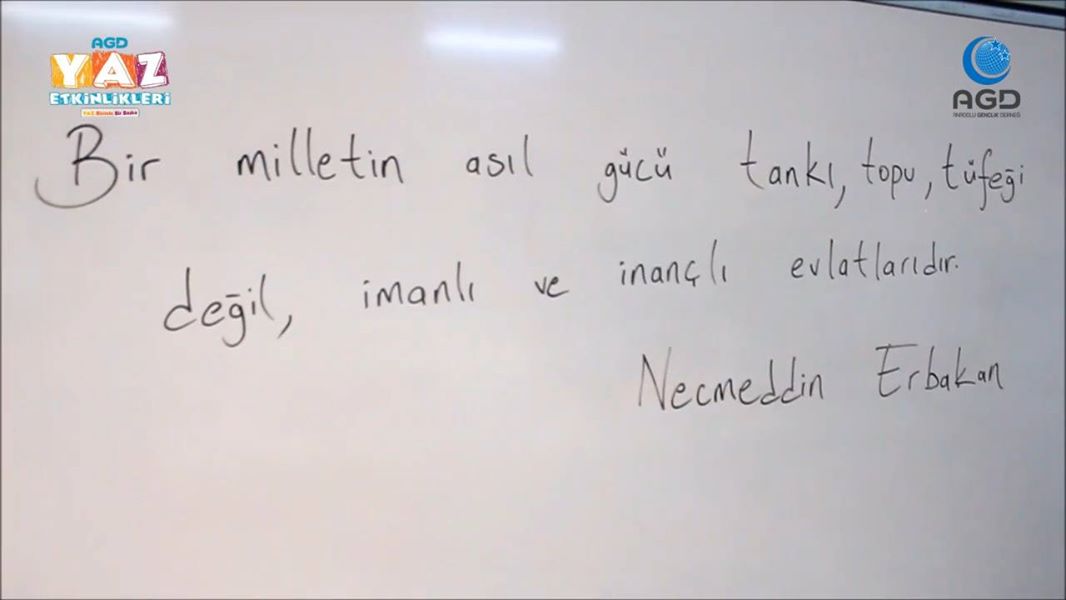 AGD
YAZ
ETKİNLİKLERİ
AGD
ANADOLU GENÇLİK DERNEĞİ
Bir milletin asıl gücü tankı, topu, tüfeği
değil, imanlı ve inançlı evlatlarıdır.
Necmeddin Erbakan